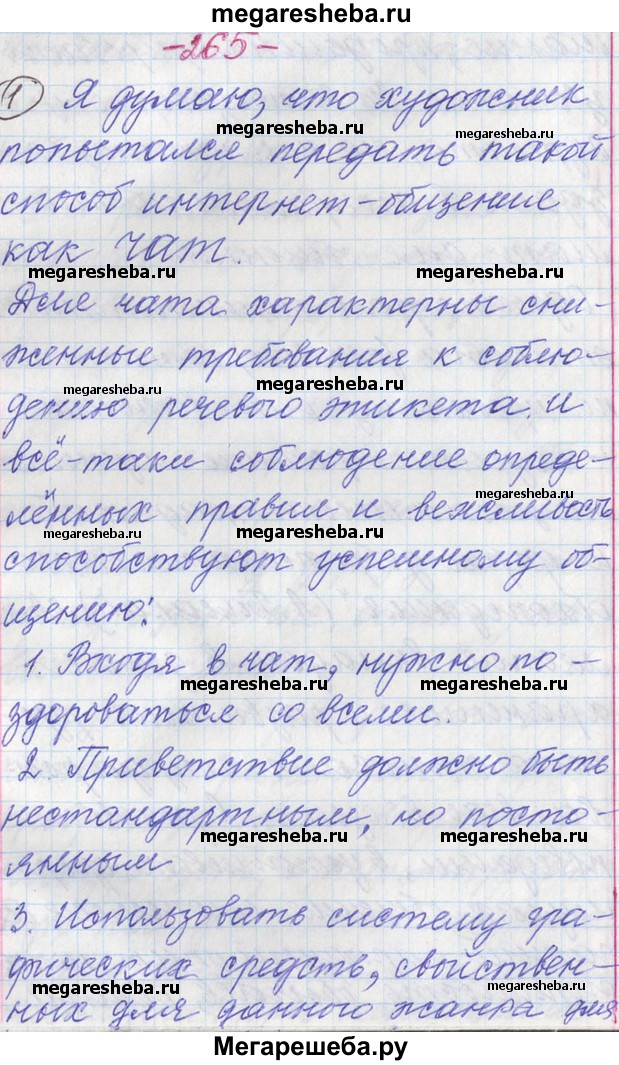 megaresheba.ru
-265-
1 Я думаю, что художник
megaresheba.ru megaresheba.ru
попытался передать такой
способ интернет-общение
как чат.
megaresheba.ru megaresheba.ru
Для чата характерны сни-
женные требования к соблю-
megaresheba.ru megaresheba.ru
дению речевого этикета. И
всё-таки соблюдение опреде-
megaresheba.ru
лённых правил и вежливость
megaresheba.ru megaresheba.ru
способствуют успешному об-
щению:
1. Входя в чат, нужно по-
megaresheba.ru megaresheba.ru
здороваться со всеми.
2. Приветствие должно быть
нестандартным, но посто-
megaresheba.ru megaresheba.ru
янным
3. Использовать систему гра-
фических средств, свойствен-
megaresheba.ru megaresheba.ru
ных для данного жанра для
Мегарешеба.ру